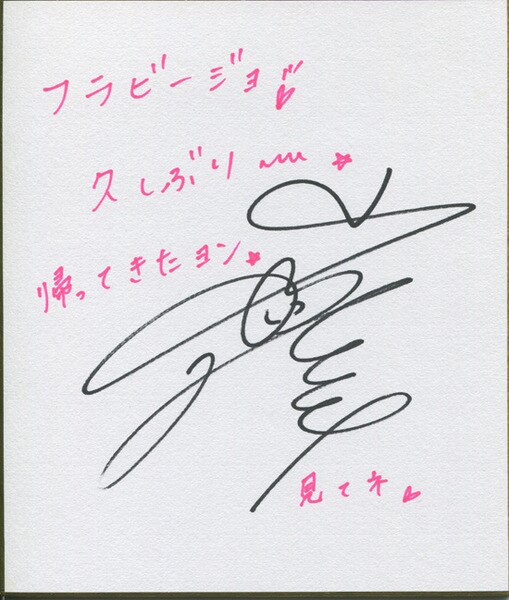 フラビージョ♡
久しぶり〰☆
帰ってきたヨン☆
見てネ♡